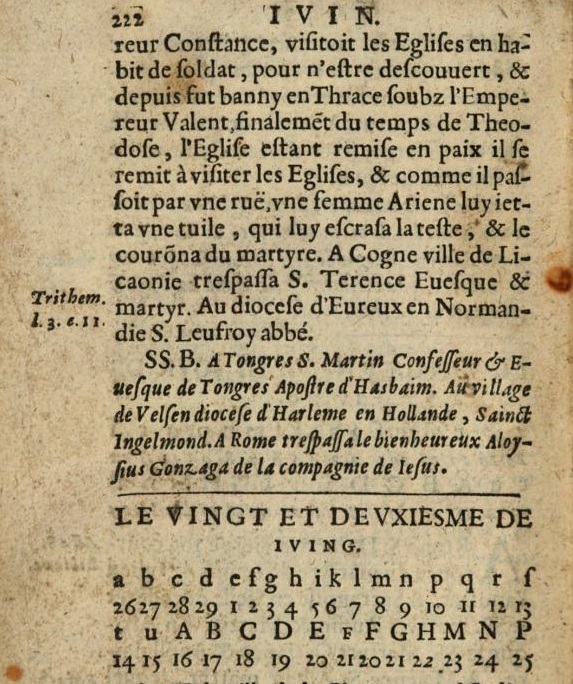 222 IVIN.
reur Conſtance, viſitoit les Egliſes en ha-
bit de ſoldat, pour n'eſtre deſcouuert, &
depuis fut banny en Thrace ſoubz l'Empe-
reur Valent, finalemẽt du temps de Theo-
doſe, l'Egliſe eſtant remiſe en paix il ſe
remit à viſiter les Egliſes, & comme il paſ-
ſoit par vne ruë, vne femme Ariene luy iet-
ta vne tuile, qui luy eſcraſa la teſte, & le
courõna du martyre. A Cogne ville de Li-
caonie treſpaſſa S. Terence Eueſque &
Trithem. martyr. Au dioceſe d'Eureux en Norman-
l. 3. c. 11. die S. Leufroy abbé.
SS. B. A Tongres S. Martin Confeſſeur & E-
ueſque de Tongres Apoſtre d'Hasbaim. Au village
de Velſen dioceſe d'Harleme en Hollande, Sainct
Ingelmond. A Rome treſpaſſa le bienheureux Aloy-
ſius Gonzaga de la compagnie de Ieſus.
LE VINGT ET DEVXIESME DE
IVING.
a b c d e f g h i k l m n p q r ſ
26 27 28 29 1 2 3 4 5 6 7 8 9 10 11 12 13
t u A B C D E F F G H M N P
14 15 16 17 18 19 20 21 20 21 22 23 24 25